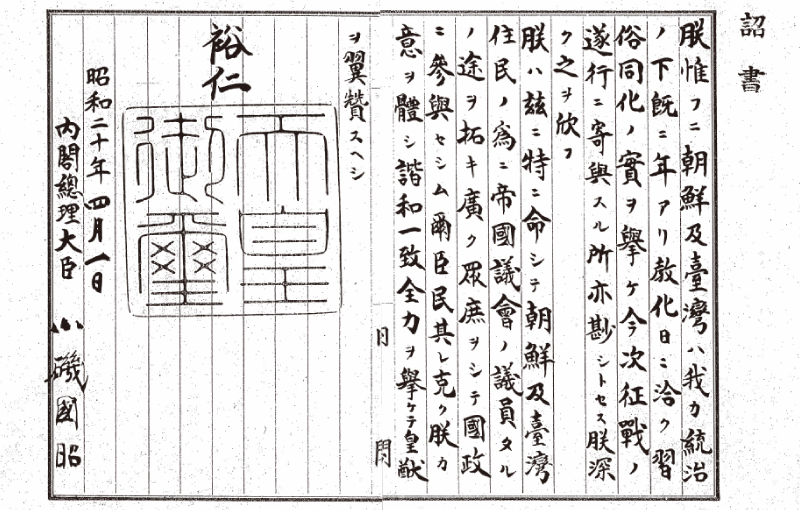 詔書
朕惟フニ朝鮮及臺灣ハ我カ統治
ノ下既ニ年アリ敎化日ニ洽ク習
俗同化ノ實ヲ擧ケ今次征戰ノ
遂行ニ寄與スル所亦尠シトセス朕深
ク之ヲ欣フ
朕ハ玆ニ特ニ命シテ朝鮮及臺灣
住民ノ爲ニ帝國議會ノ議員タル
ノ途ヲ拓キ廣ク眾庶ヲシテ國政
ニ參與セシム爾臣民其レ克ク朕カ
意ヲ體シ諧和一致全力ヲ擧ケテ皇猷
ヲ翼贊スヘシ
裕仁
天皇御璽
昭和二十年四月一日
內閣總理大臣 小磯國昭